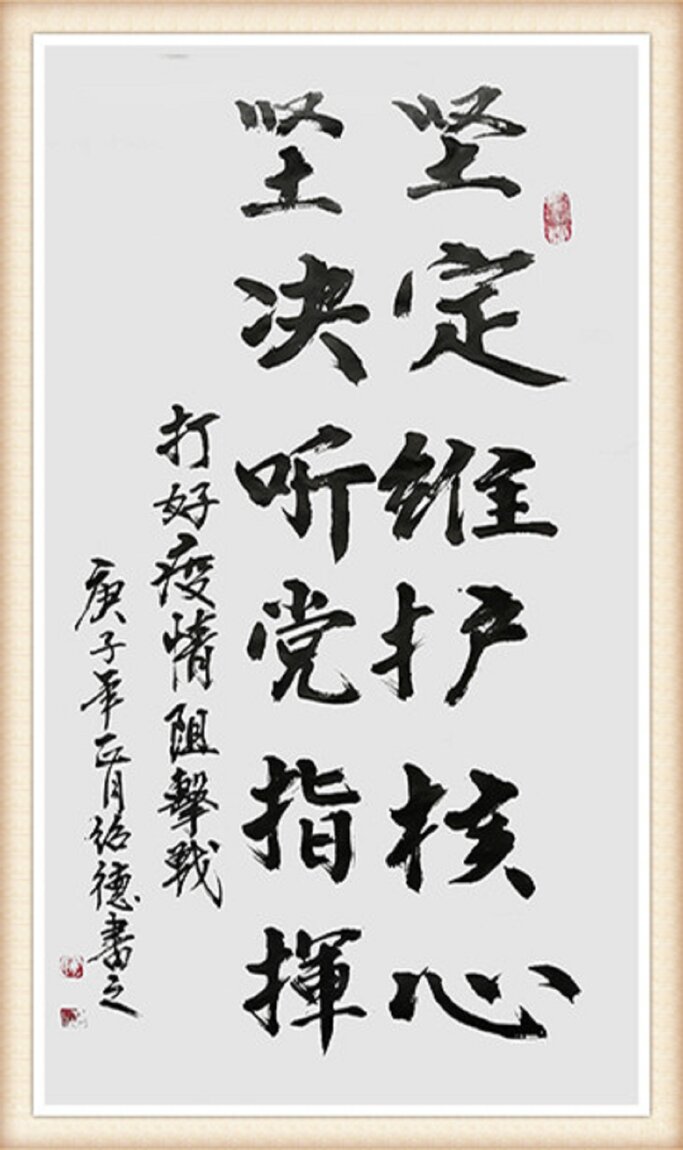 坚定维护核心
坚决听党指揮
打好疫情阻擊戰
庚子年正月绍德書之